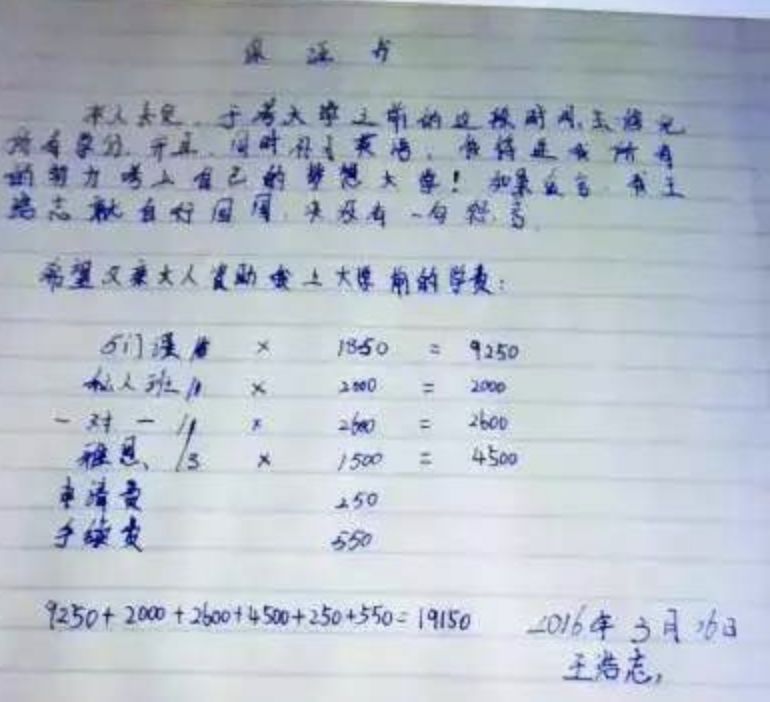 保 证 书
本人去完、于考大学之前的这段时间,去修完
所有学分,并且,同时补习英语,我将尽我所有
的努力考上自己的梦想大学!如果食言,我王
浩志就自行回国,决没有一句怨言
希望父亲大人资助我上大学前的学费:
5门课 × 1850 = 9250
私人班/1 × 2000 = 2000
一对一/1 × 2600 = 2600
雅思、/3 × 1500 = 4500
申请费 250
手续费 550
9250+2000+2600+4500+250+550=19150
2016年3月16日
王浩志,